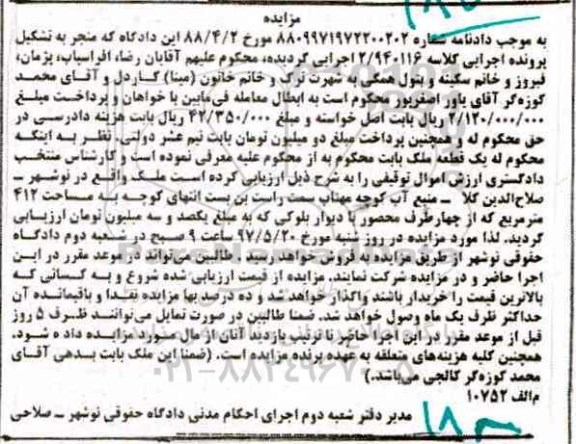 مزایده
به موجب دادنامه شماره ۸۸۰۹۹۷۱۹۷۲۲۰۰۲۰۲ مورخ ۸۸/۴/۲ این دادگاه که منجر به تشکیل
پرونده اجرایی کلاسه ۲/۹۴۰۱۱۶ اجرایی گردیده، محکوم علیهم آقایان رضا، افراسیاب، پژمان،
فیروز و خانم سکینه و بتول همگی به شهرت ترک و خانم خاتون (مینا) کاردل و آقای محمد
کوزه‌گر آقای یاور اصغرپور محکوم است به ابطال معامله فی‌مابین با خواهان و پرداخت مبلغ
۲/۱۲۰/۰۰۰/۰۰۰ ریال بابت اصل خواسته و مبلغ ۴۲/۳۵۰/۰۰۰ ریال بابت هزینه دادرسی در
حق محکوم له و همچنین پرداخت مبلغ دو میلیون تومان بابت نیم عشر دولتی. نظر به اینکه
محکوم له یک قطعه ملک بابت محکوم به از محکوم علیه معرفی نموده است و کارشناس منتخب
دادگستری ارزش اموال توقیفی را به شرح ذیل ارزیابی کرده است ملک واقع در نوشهر ـ
صلاح‌الدین کلا ـ منبع آب کوچه مهتاب سمت راست بن بست انتهای کوچه به مساحت ۴۱۲
مترمربع که از چهارطرف محصور با دیوار بلوکی که به مبلغ یکصد و سه میلیون تومان ارزیابی
گردید. لذا مورد مزایده در روز شنبه مورخ ۹۷/۵/۲۰ ساعت ۹ صبح در شعبه دوم دادگاه
حقوقی نوشهر از طریق مزایده به فروش خواهد رسید. طالبین می‌تواند در موعد مقرر در این
اجرا حاضر و در مزایده شرکت نمایند. مزایده از قیمت ارزیابی شده شروع و به کسانی که
بالاترین قیمت را خریدار باشند واگذار خواهد شد و ده درصد بها مزایده نقدا و باقیمانده آن
حداکثر ظرف یک ماه وصول خواهد شد. ضمنا طالبین در صورت تمایل می‌توانند ظرف ۵ روز
قبل از موعد مقرر در این اجرا حاضر تا ترتیب بازدید آنان از مال مورد مزایده داده شود.
همچنین کلیه هزینه‌های متعلقه به عهده برنده مزایده است. (ضمنا این ملک بابت بدهی آقای
محمد کوزه‌گر کالجی می‌باشد.)
م‌الف ۱۰۷۵۲
مدیر دفتر شعبه دوم اجرای احکام مدنی دادگاه حقوقی نوشهر ـ صلاحی
۰۲۱-۸۸۳۴۹۶۷۰-۵